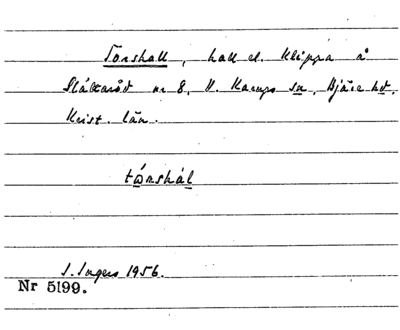 Torshall, hall el. klippa å
Slättaröd nr 8, V. Karups sn, Bjäre hd.
Krist. län.
tồrshál
S. Ingers 1956.
Nr 5199.